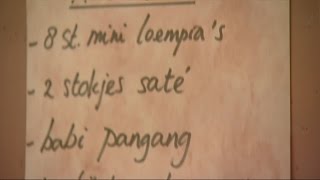 - 8 st. mini loempia's
- 2 stokjes saté
- babi pangang